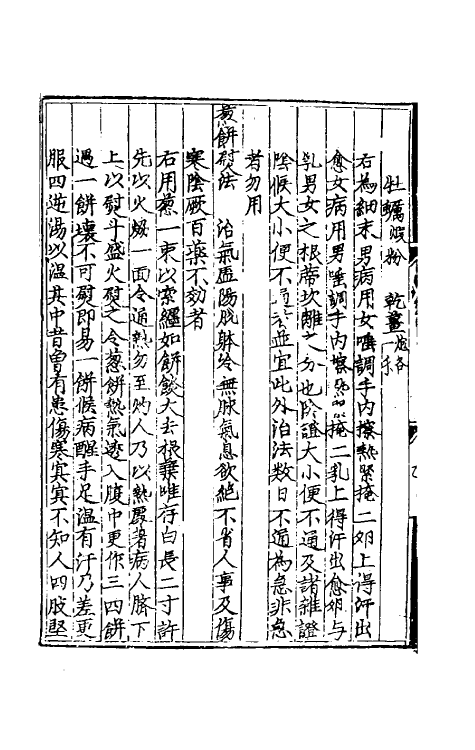 牡蠣煆粉　乾薑炮各一
右為細末男病用女唾調手内擦熱緊掩二卵上得汗出
愈女病用男唾調手内擦熱緊掩二乳上得汗出愈卵与
乳男女之根蒂坎離之分也陰證大小便不通及諸雜證
陰候大小便不通並宜此外治法数日不通為急非急
者勿用
葱餅熨法　治氣虛陽脱躰冷無脉氣息欲絶不省人事及傷
寒陰厥百藥不効者
右用葱一束以索纏如餅餤大去根葉唯存白長二寸許
先以火煿一面令通熱勿至灼人乃以熱處著病人臍下
上以熨斗盛火熨之令葱餅熱氣透入腹中更作三四餅
遇一餅壊不可熨即易一餅候病醒手足温有汗乃差更
服四逆湯以温其中昔曽有患傷寒冥冥不知人四肢堅